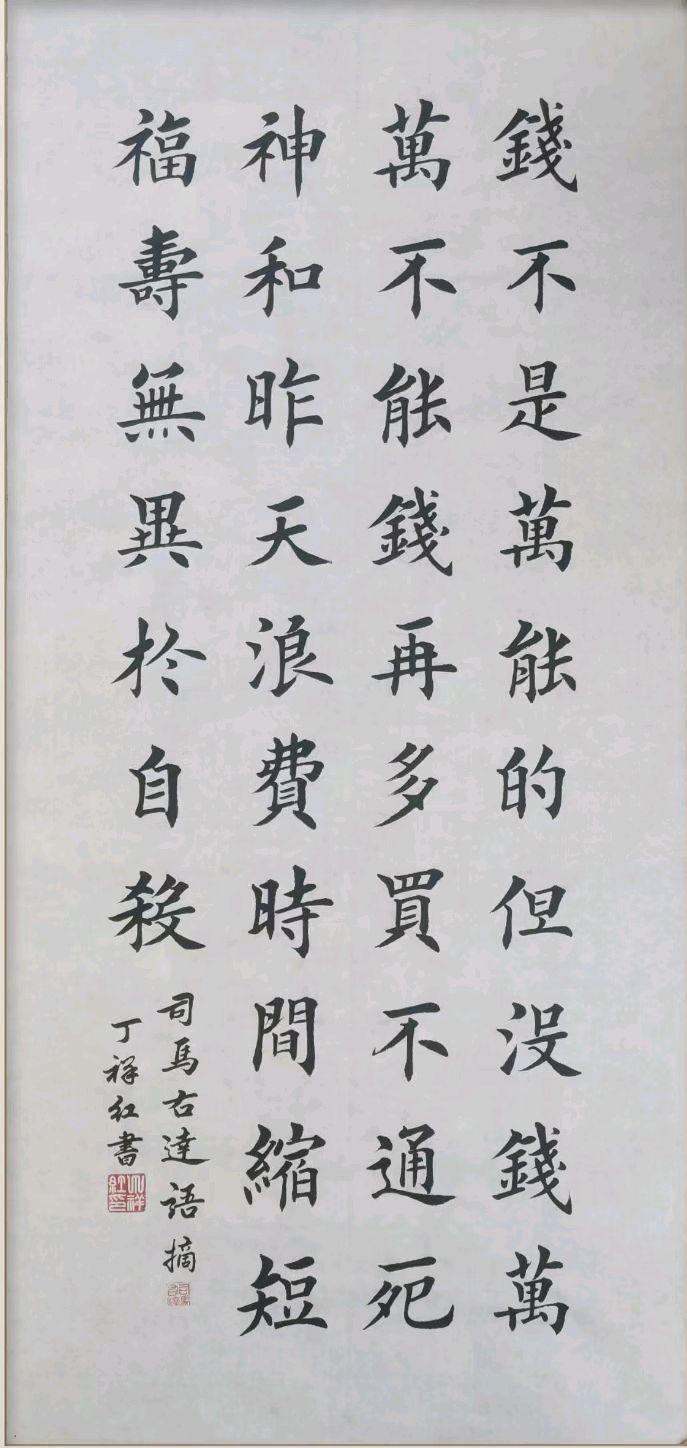 錢不是萬能的但没錢萬
萬不能錢再多買不通死
神和昨天浪費時間縮短
福壽無異於自殺
司馬右達語摘
丁祥红書